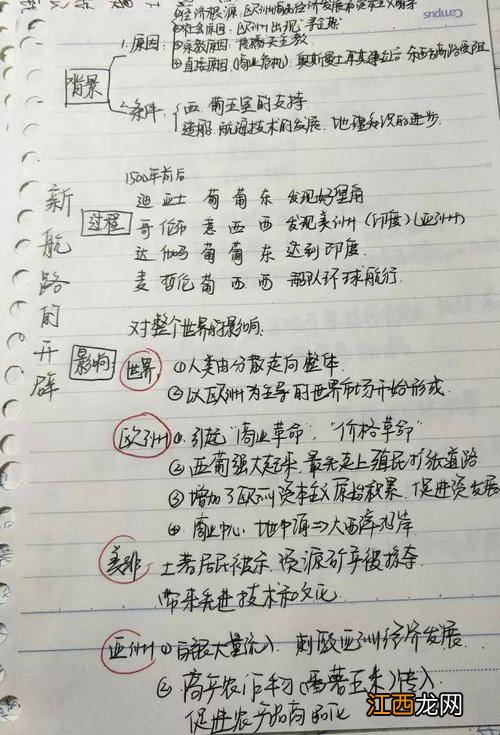 Campus
①经济根源：欧洲商品经济发展和资本主义萌芽
②社会原因：欧洲出现"寻金热"
1.原因：
③宗教原因：传播天主教
④直接原因（商业危机）：奥斯曼土耳其建立后，东西方商路受阻
背景
2.条件：
西葡王室的支持.
造船、航海技术的发展、地理知识的进步.
新航路的开辟
1500年前后
过程
迪亚士 葡 葡 东 发现好望角
哥伦布 意 西 西 发现美洲（印度）（亚洲）
达伽马 葡 葡 东 达到印度.
麦哲伦 葡 西 西 船队环球航行.
对整个世界的影响.
影响
世界 ①人类由分散走向整体.
②以欧洲为主导的世界市场开始形成.
欧洲 ①.引起"商业革命"，"价格革命"
②西葡强大起来，最先走上殖民扩张道路
③增加了欧洲资本主义原始积累，促进资发展
④.商业中心，地中海⇒大西洋沿岸
美非 土著居民被杀，资源矿产被掠夺.
带来先进技术和文化.
亚洲 ①白银大量流入，刺激亚洲经济发展.
② 高产农作物（番薯玉米）传入
促进农产品商品化
江西龙网